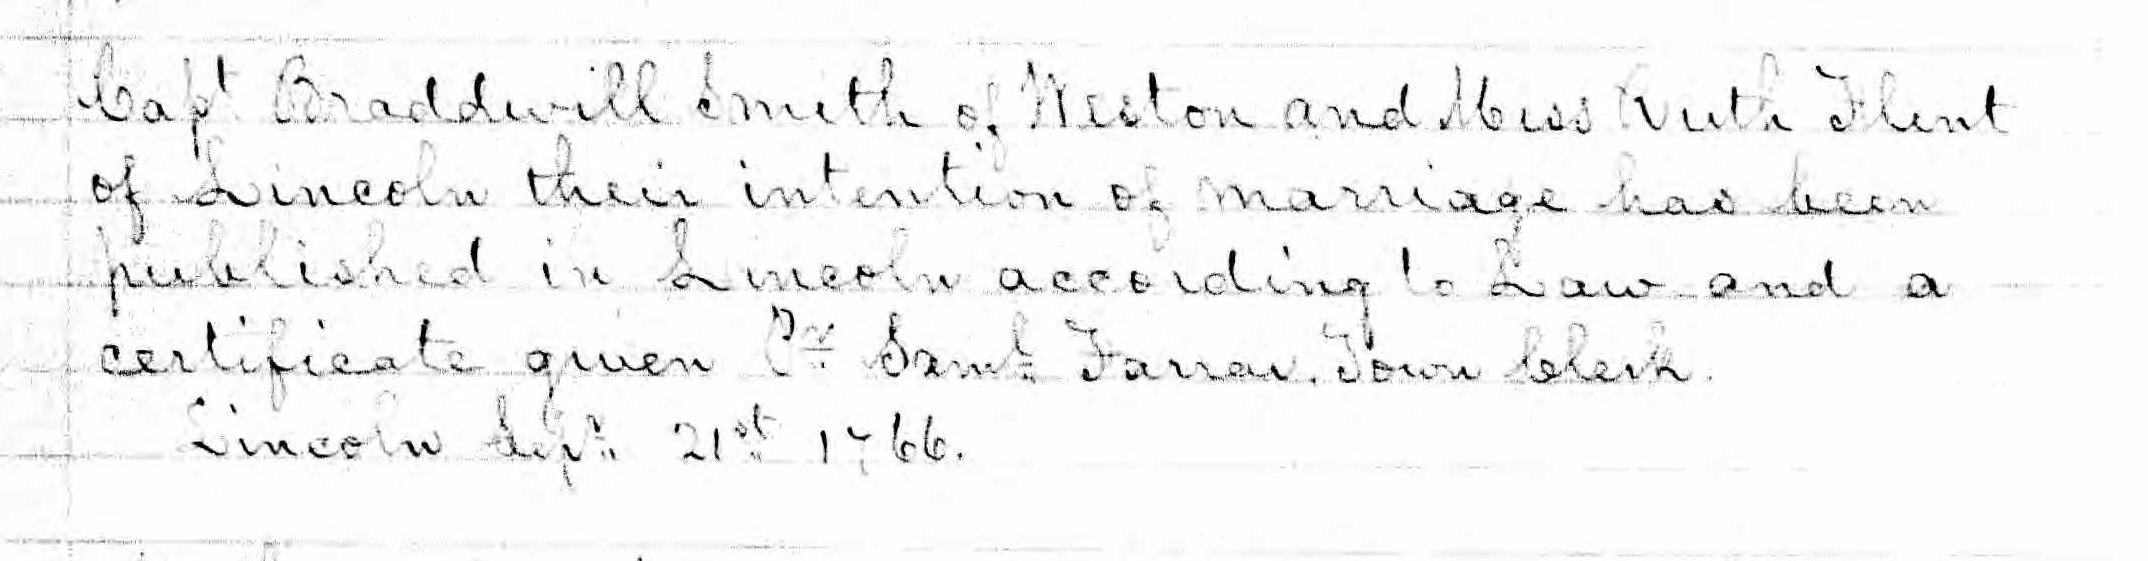 Capt Braddwill Smith of Weston and Miss Ruth Flint
of Lincoln their intention of marriage has been
published in Lincoln according to Law and a
certificate given Pr Saml Farrar. Town Clerk.
Lincoln Sepr 21st 1766.